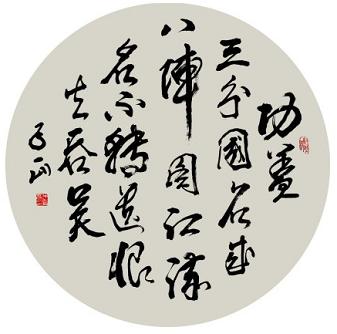 功蓋
三分國名成
八陣圖江流
石不轉遺恨
失吞吴